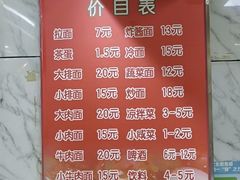 价目表
拉面 7元 炸酱面 13元
茶蛋 1.5元 冷面 15元
大排面 20元 蔬菜面 12元
小排面 15元 炒面 18元
大肉面 20元 凉拌菜 3-5元
小肉面 15元 小咸菜 1-2元
牛肉面 20元 啤酒 6元-12元
小牛肉面 15元 饮料 4-5元